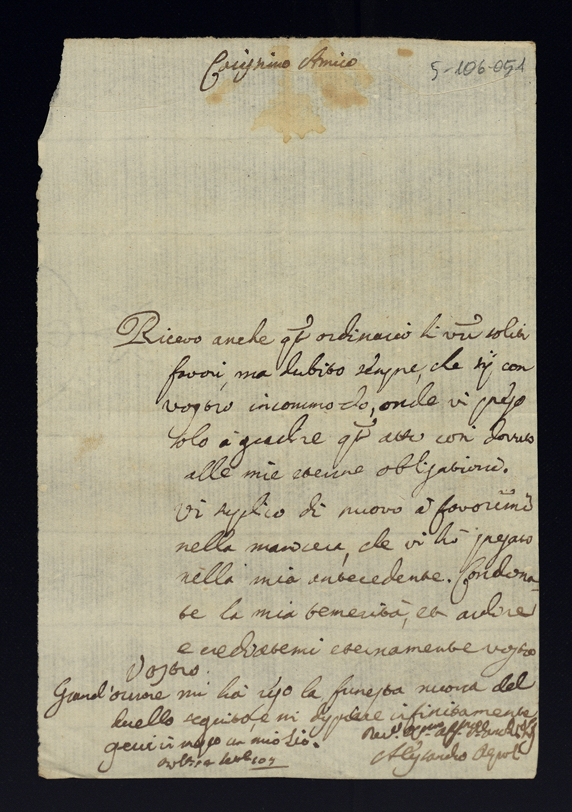 Carissimo Amico
5-106-051
Ricevo anche qto ordinario li vri soliti
favori, ma dubito sempre, che sij con
vostro incommodo, onde vi prego
solo à gradire qto atto così dovuto
alle mie eterne obligationi.
Vi suplico di nuovo à favorirmi
nella maniera, che vi hò pregato
nella mia antecedente. Condona-
te la mia temerità, et ardire
e credetemi eternamente vostro
Vostro
Grand'orrore mi hà reso la funesta nuova del
duello seguito, e mi dispiace infinitamente
mio Zio.
Alessandro